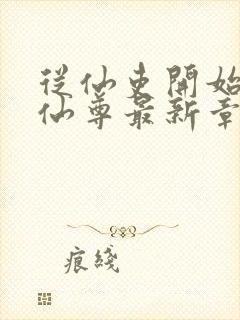 從仙吏開始
仙尊最新章
痕綫